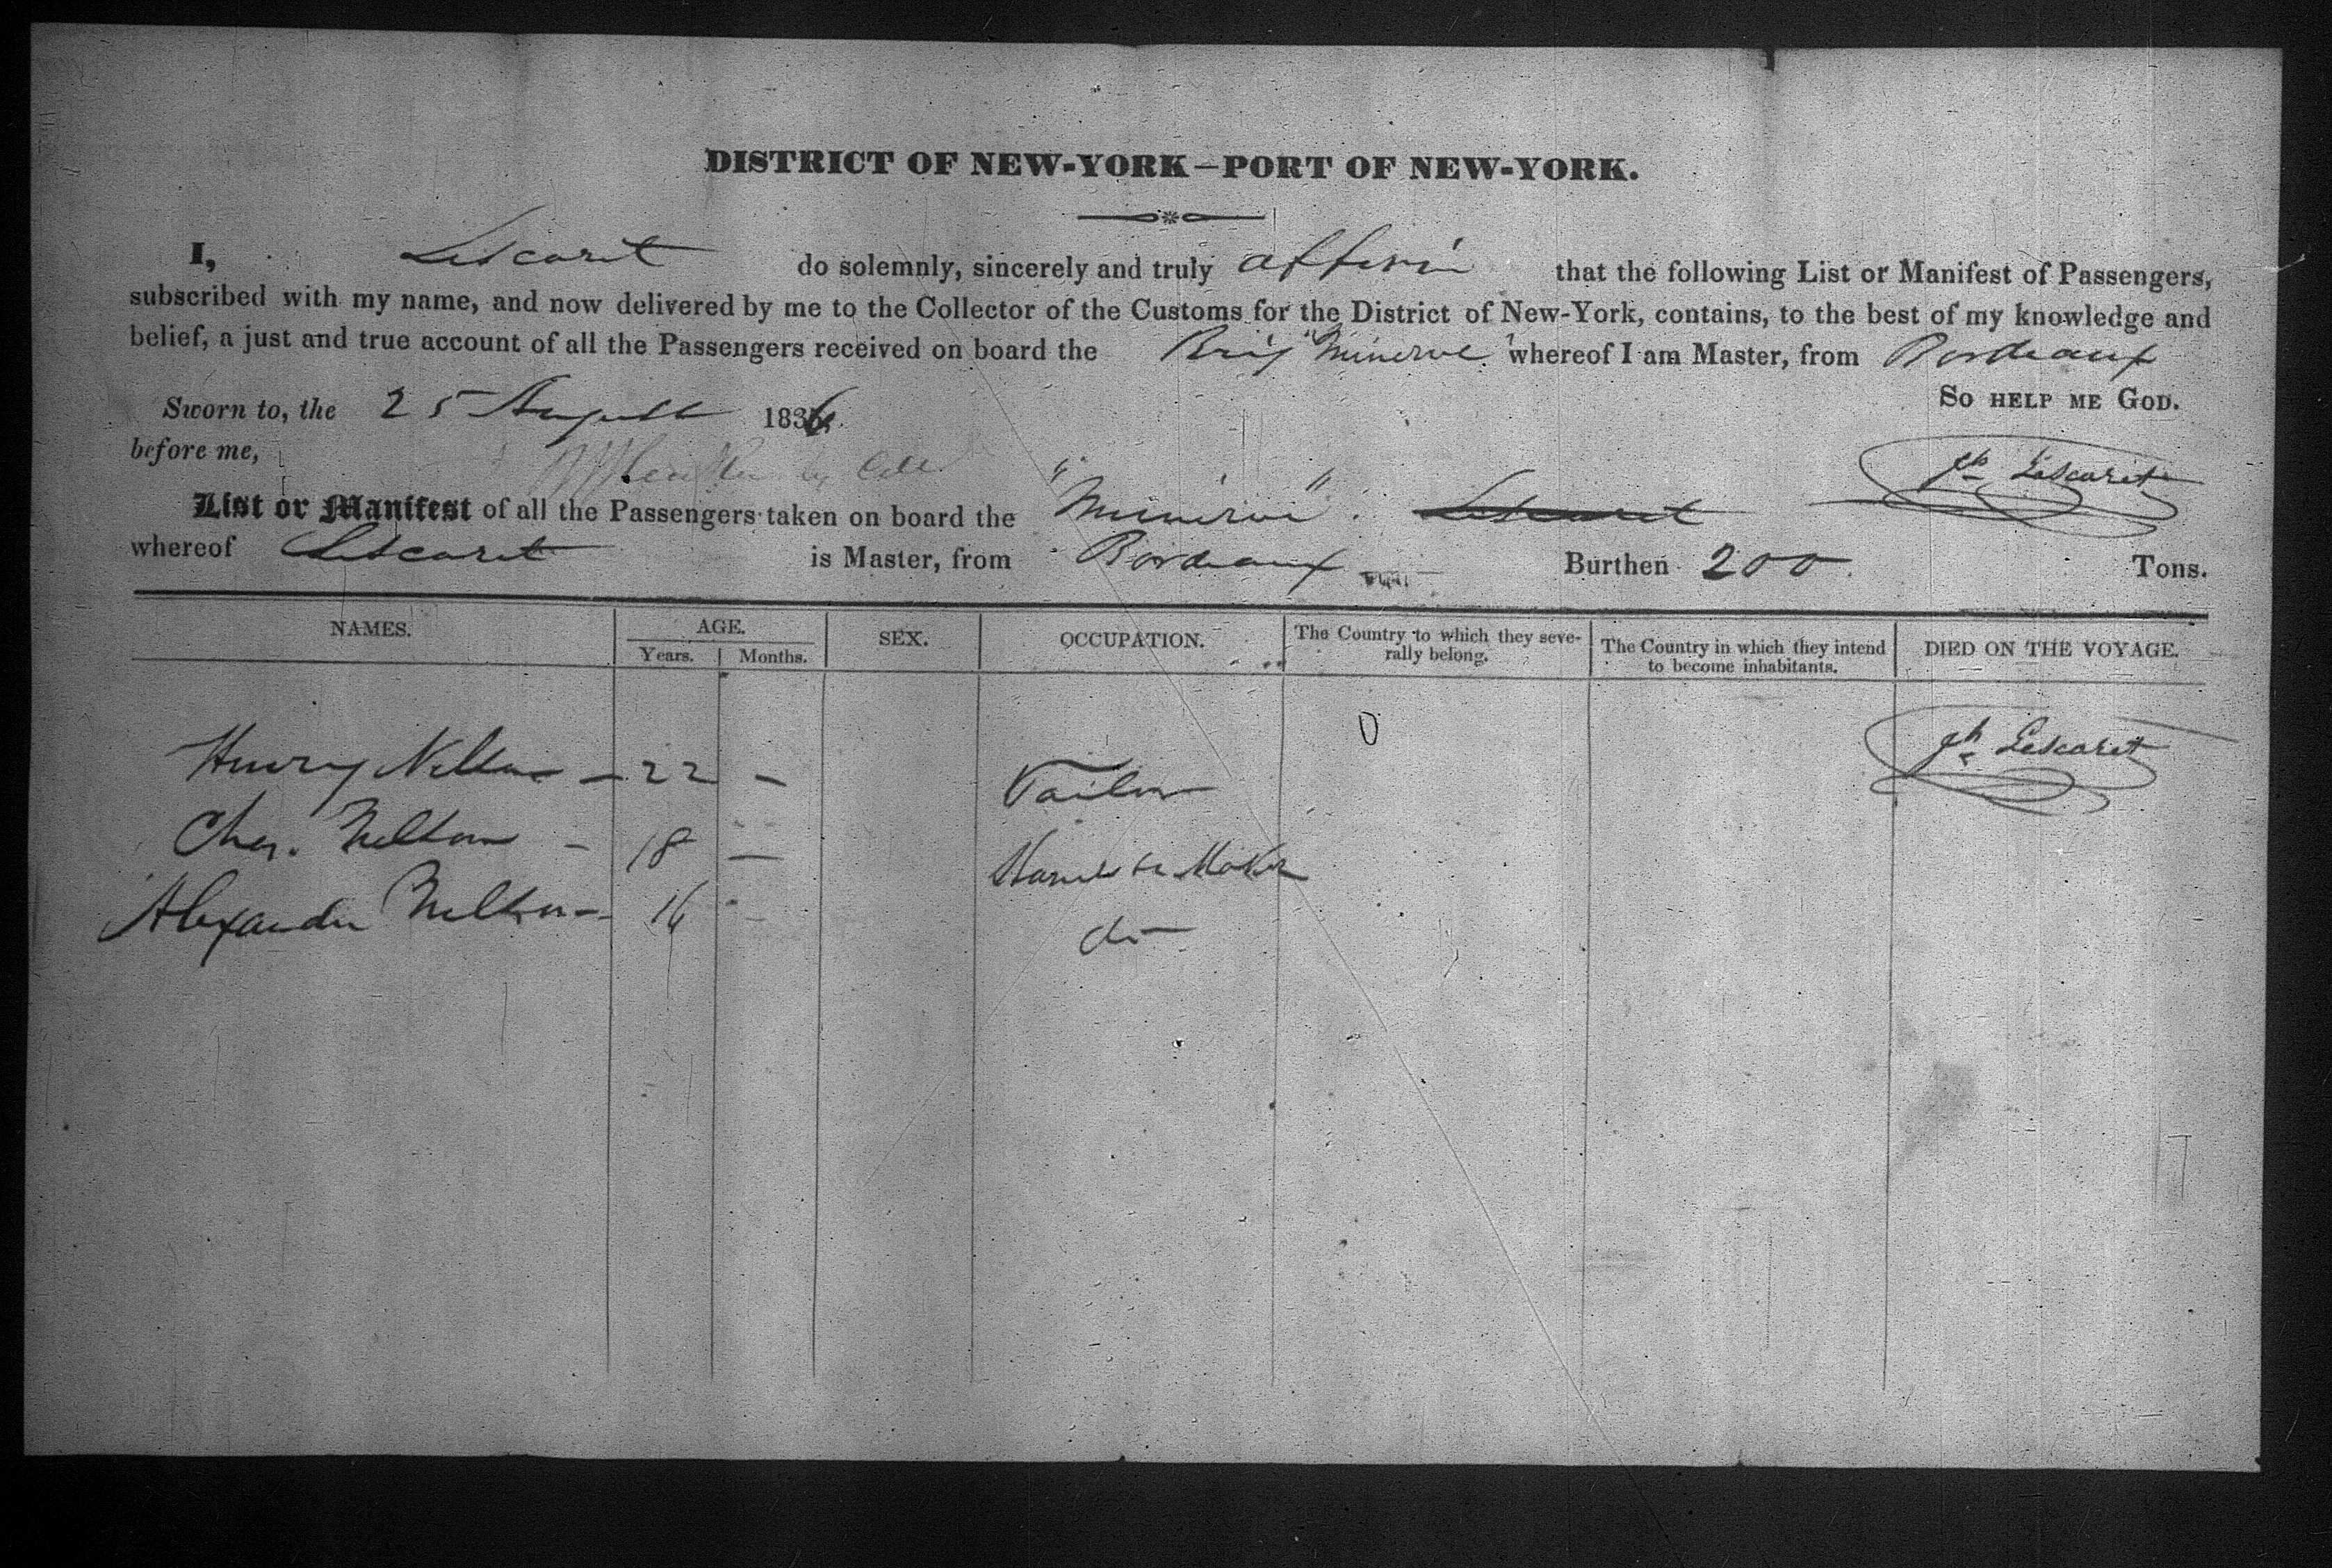 DISTRICT OF NEW-YORK—PORT OF NEW-YORK.
I, Lescaret do solemnly, sincerely and truly affirm that the following List or Manifest of Passengers,
subscribed with my name, and now delivered by me to the Collector of the Customs for the District of New-York, contains, to the best of my knowledge and
belief, a just and true account of all the Passengers received on board the Brig "Minerve" whereof I am Master, from Bordeaux
Sworn to, the 25 August 1836. So HELP ME GOD.
before me, Lescaret
List or Manifest of all the Passengers taken on board the "Minerve". Lescaret
whereof Lescaret is Master, from Bordeaux Burthen 200 Tons.
NAMES. AGE. SEX. OCCUPATION. The Country to which they seve-
rally belong. The Country in which they intend
to become inhabitants. DIED ON THE VOYAGE.
Years. Months.
Henry Nelton — 22 — Tailor Lescaret
Chas. Nelton — 18 — Harness Maker
Alexander Nelton — 16 — do